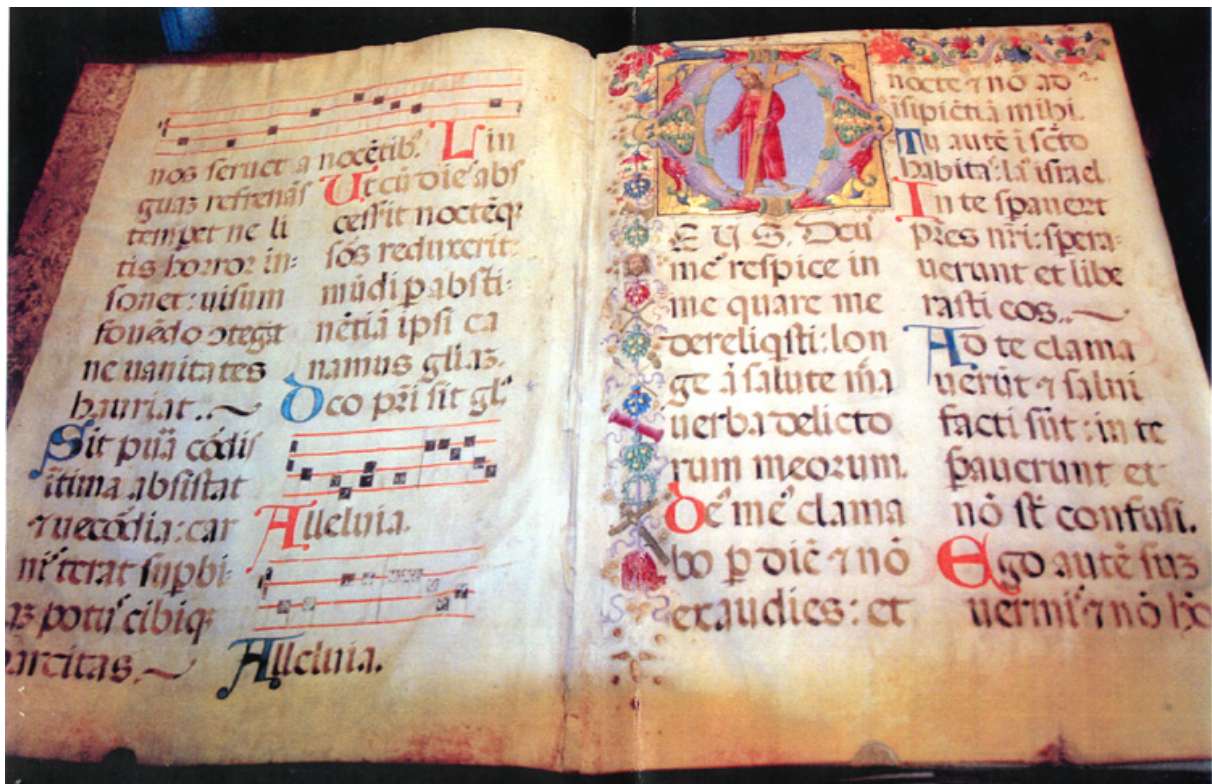 nos seruet a nocētib'. Lin
guaz refrenās
temp̲et ne li
tis horror in:
sonet: uisum
fouēdo ↄtegat
ne uanitates
hauriat..~
Sit pura cōdis
ītima absistat
⁊ uecōdia: car
nis' terat sup̲bi
az potu' cibiqꝫ
parcitas.~
Ut cū die' abs
cess'it noctēqꝫ
sōs reduxerit:
mūdi p absti:
nētiā ipsi ca
namus gl'iaz.
Deo p̄ri sit gl'a
Alleluia.
Alleluia.
DEUS. Deus
me' respice in
me quare me
dereliq'sti: lon
ge a salute m̄a
uerba delicto
rum meorum.
De' me' clama
bo p die ⁊ nō
exaudies: et
nocte ⁊ nō ad
īsipiētiā mihi.
Tu autē ī sc̄to
habitas: las' israel.
In te sp̲auert
p̄res nr̄i: spera:
uerunt et libe
rasti eos..~
Ad te clama
uerūt ⁊ salui
facti sūt: in te
sp̲auerunt et
nō st̄ confusi.
Ego autē suꝫ
uermis' ⁊ nō ho